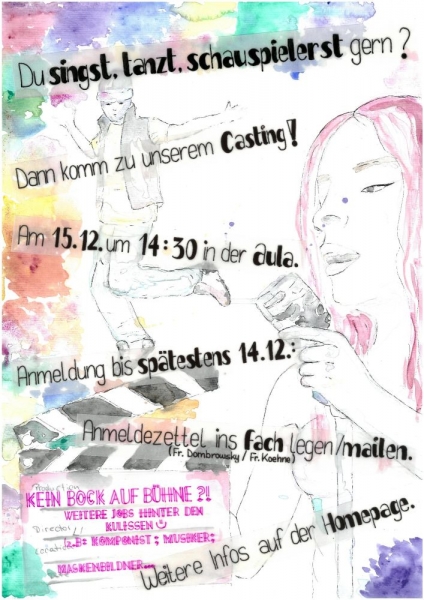 Du singst, tanzt, schauspielerst gern ?
Dann komm zu unserem Casting!
Am 15.12. um 14:30 in der Aula.
Anmeldung bis spätestens 14.12.:
Anmeldezettel ins Fach legen/mailen.
(Fr. Dombrowsky / Fr. Koehne)
Production
KEIN BOCK AUF BÜHNE ?!
WEITERE JOBS HINTER DEN
Director
KULISSEN
Z.B: KOMPONIST ; MUSIKER;
MASKENBILDNER...
Weitere Infos auf der Homepage.